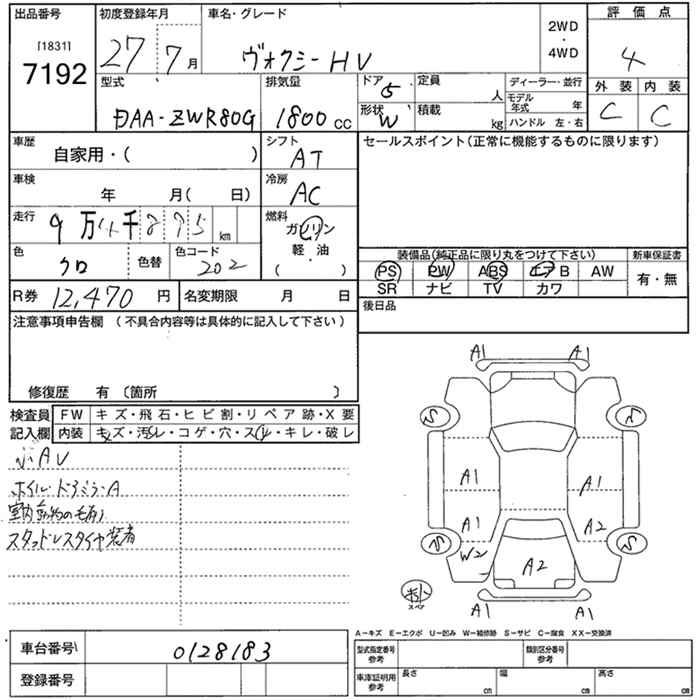 出品番号 初度登録年月 車名・グレード 2WD・4WD 評価点
[1831]
7192 27 7月 ヴォクシーHV 4
型式 排気量 ドア 5 定員 人 ディーラー・並行 外装 内装
DAA-ZWR80G 1800 cc 形状 W 積載 kg モデル年式 年 C C
ハンドル 左・右
車歴 シフト セールスポイント(正常に機能するものに限ります)
自家用・( ) AT
車検 冷房
年 月( 日) AC
走行 燃料
9万 千 8 7 5 km ガソリン
軽・油
( ・ )
色 色替 色コード 装備品(純正品に限り丸をつけて下さい) 新車保証書
クロ 202 PS PW ABS エアB AW 有・無
SR ナビ TV カワ
R券 12,470 円 名変期限 月 日 後日品
注意事項申告欄 (不具合内容等は具体的に記入して下さい)
修復歴 有 〔箇所 〕
検査員記入欄 FW キズ・飛石・ヒビ割・リペア跡・X要
内装 キズ・汚レ・コゲ・穴・スレ・キレ・破レ
小AV
ホイル・ドアミラーA
室内動物の毛有り
スタッドレスタイヤ装着
A1 A1
S S
A1 A1
A1 A2
S S
W2 A2
スペア
A1 A1
A−キズ E−エクボ U−凹み W−補修跡 S−サビ C−腐食 XX−交換済
車台番号 0128183 型式指定番号 参考 類別区分番号 参考
登録番号 車庫証明用 参考 長さ cm 幅 cm 高さ cm